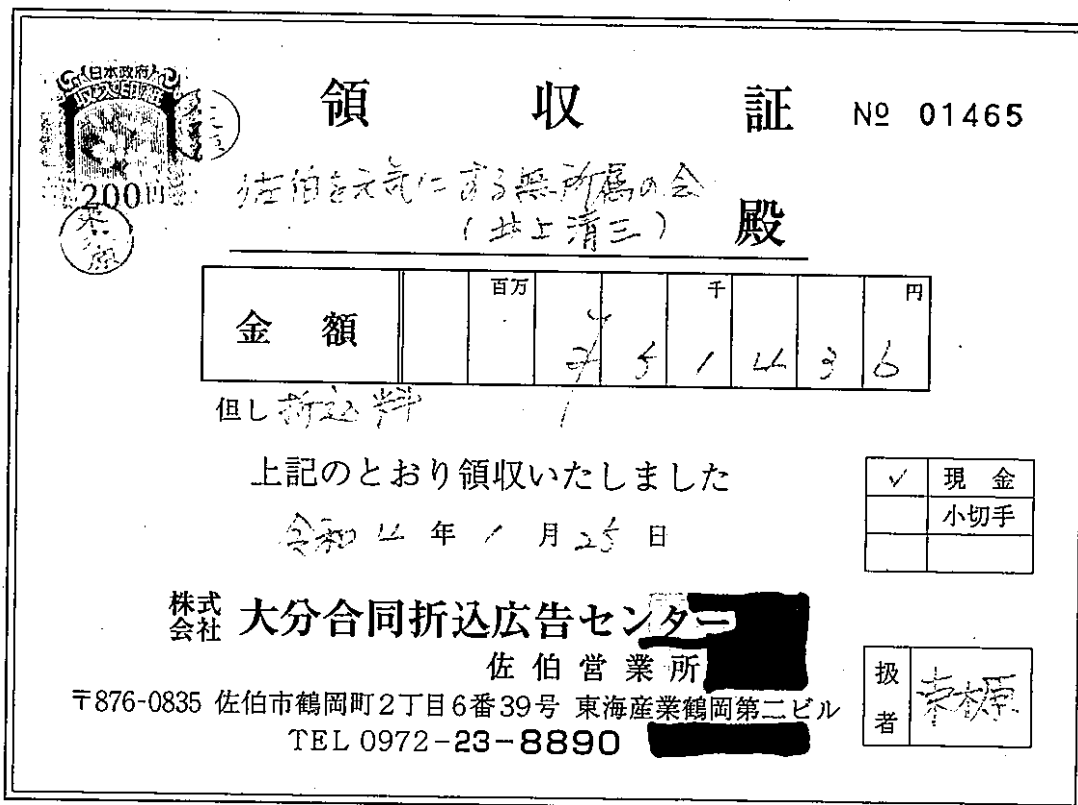 日本政府
収入印紙
200円
領収証 № 01465
佐伯を元気にする無所属の会
(井上清三) 殿
金額 百万 千 円
¥ 5 1 4 3 6
但し 折込料
上記のとおり領収いたしました
令和4年1月25日
✓ 現金
小切手
株式会社 大分合同折込広告センター
佐伯営業所
〒876-0835 佐伯市鶴岡町2丁目6番39号 東海産業鶴岡第二ビル
TEL 0972-23-8890
扱者